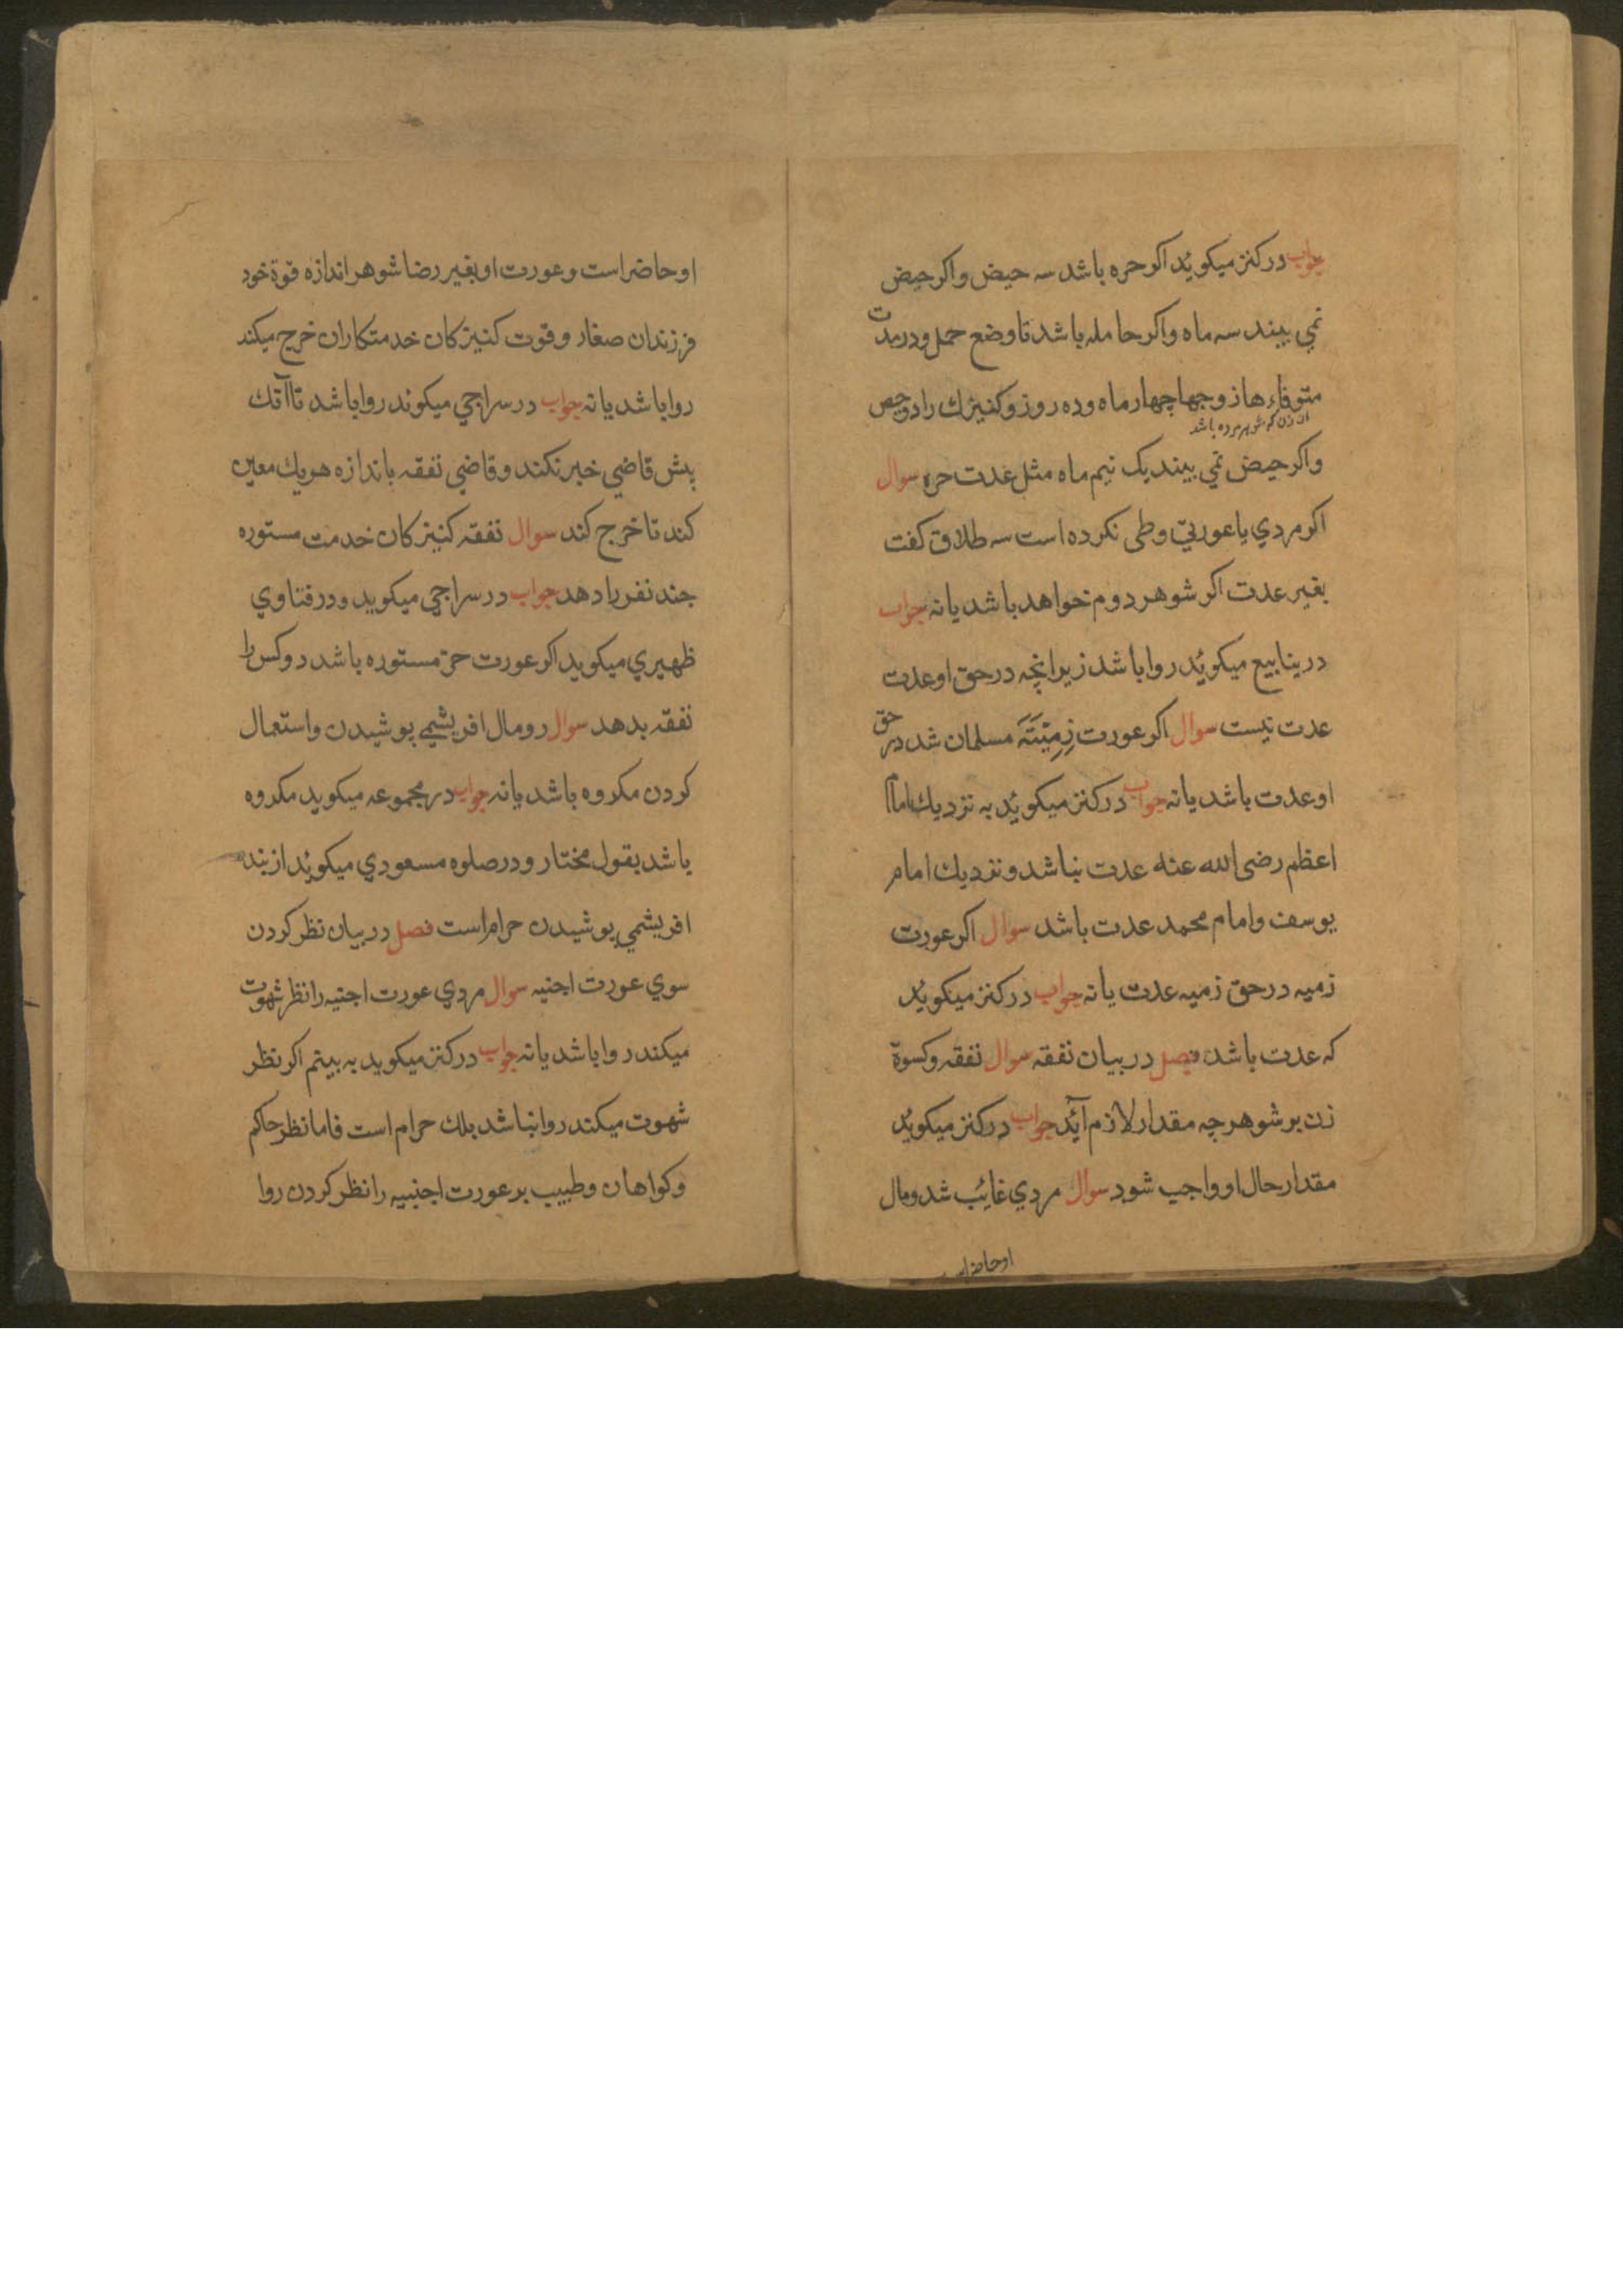 جواب در کنز میکوید اکر حره باشد سه حیض واکر حیض
نمي بیند سه ماه واکر حامله باشد تا وضع حمل ودر مدت
متوفاء ها زوجها چهار ماه وده روز وکنیزك را دو حیض
ان زن که شوهر مرده باشد
واکر حیض نمي بیند یک نیم ماه مثل عدت حره سوال
اکر مردي با عورتي وطی نکرده است سه طلاق کفت
بغیر عدت اکر شوهر دوم خواهد باشد یا نه جواب
در ینابیع میکوید روا باشد زیرا نچه در حق او عدت
عدت نیست سوال اکر عورت زمیته مسلمان شد در حق
او عدت باشد یا نه جواب در کنز میکوید به نزدیك امام
اعظم رضی الله عنه عدت نباشد ونزدیك امام
یوسف وامام محمد عدت باشد سوال اکر عورت
زمیه در حق زمیه عدت یا نه جواب در کنز میکوید
که عدت باشد فصل در بیان نفقه سوال نفقه وکسوة
زن بر شوهر چه مقدار لازم آید جواب در کنز میکوید
مقدار حال او واجب شود سوال مردي غائب شد ومال
او حاضر
او حاضر است وعورت او بغیر رضا شوهر اندازه قوة خود
فرزندان صغار وقوت کنیزکان خدمتکاران خرج میکند
روا باشد یا نه جواب در سراجي میکوند روا باشد تا آنك
پش قاضي خبر نکند وقاضي نفقه باندازه هریك معین
کند تا خرج کند سوال نفقه کنیزکان خدمت مستوره
جند نفر را دهد جواب در سراجي میکوید ودر فتاوي
ظهیري میکوید اکر عورت حرّ مستوره باشد دو کس را
نفقه بدهد سوال رومال افریشمي پوشیدن واستعمال
کردن مکروه باشد یا نه جواب در مجموعه میکوید مکروه
باشد بقول مختار ودر صلوه مسعودي میکوید ازبند
افریشمي پوشیدن حرام است فصل در بیان نظر کردن
سوي عورت اجنیه سوال مردي عورت اجنیه را نظر شهوت
میکند روا باشد یا نه جواب در کنز میکوید به بینم اکر نظر
شهوت میکند روا نباشد بلك حرام است فاما نظر حاکم
وکواهان وطبیب بر عورت اجنبیه را نظر کردن روا